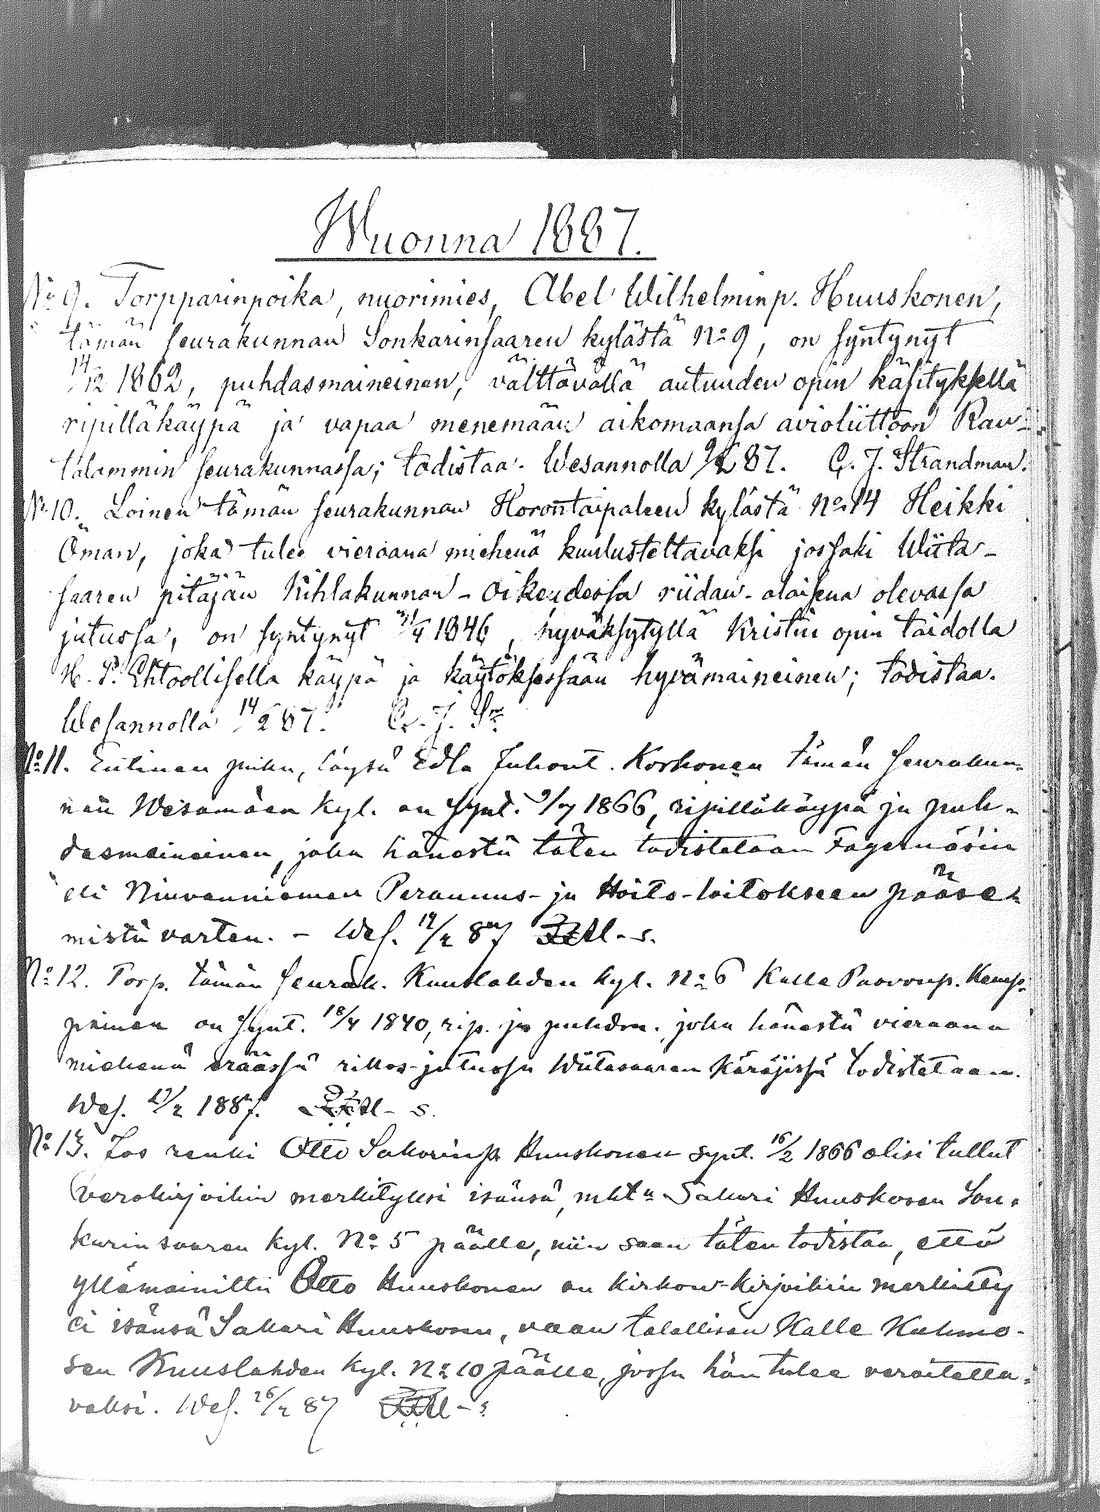 Wuonna 1887.
No 9. Torpparinpoika, nuorimies, Abel Wilhelminp. Huuskonen,
tämän seurakunnan Sonkarinsaaren kylästä No 9, on syntynyt
14/12 1862, puhdasmaineinen, välttävällä autuuden opin käsityksellä
ripilläkäypä ja vapaa menemään aikomaansa avioliittoon Rau-
talammin seurakunnassa; todistaa. Wesannolla 9/2 87. C. J. Strandman.
No 10. Loinen tämän seurakunnan Horontaipaleen kylästä No 14 Heikki
Öman, joka tulee vieraana miehenä kuulusteltavaksi jossaki Wiita-
saaren pitäjän Kihlakunnan-oikeudessa riidan-alaisena olevassa
jutussa, on syntynyt 21/4 1846, hyväksytyllä Kristin opin taidolla
H. P. Ehtoollisella käypä ja käytöksessään hyvämaineinen; todistaa.
Wesannolla 14/2 87. C. J. Sn
No 11. Entinen piika, löysä Edla Juhont. Korhonen tämän seurakun-
nan Wesamäen kyl. on synt. 9/7 1866, ripilläkäypä ja puh-
dasmaineinen, joka hänestä täten todistetaan Fagernäsin
eli Niuvanniemen Parannus- ja Hoito-laitokseen pääse-
mistä varten. - Wes. 19/2 87 -s.
No 12. Torp. tämän seurak. Kuuslahden kyl. No 6 Kalle Paavonp. Kemp-
painen on synt. 18/4 1840, rip. ja puhdm. joka hänestä vieraana
miehenä eräässä rikos-jutussa Wiitasaaren Käräjissä todistetaan.
Wes. 21/2 1887. - s.
No 13. Jos renki Otto Sakarinp. Huuskonen synt. 16/2 1866 olisi tullut
verokirjoihin merkityksi isänsä, mkt Sakari Huuskosen Son-
karinsaaren kyl. No 5 päälle, niin saan täten todistaa, että
yllämainittu Otto Huuskonen on kirkon-kirjoihin merkitty
ei isänsä Sakari Huuskosen, vaan talollisen Kalle Kuhmo-
sen Kuuslahden kyl. No 10 päälle, jossa hän tulee veroitetta-
vaksi. Wes. 26/2 87 -s